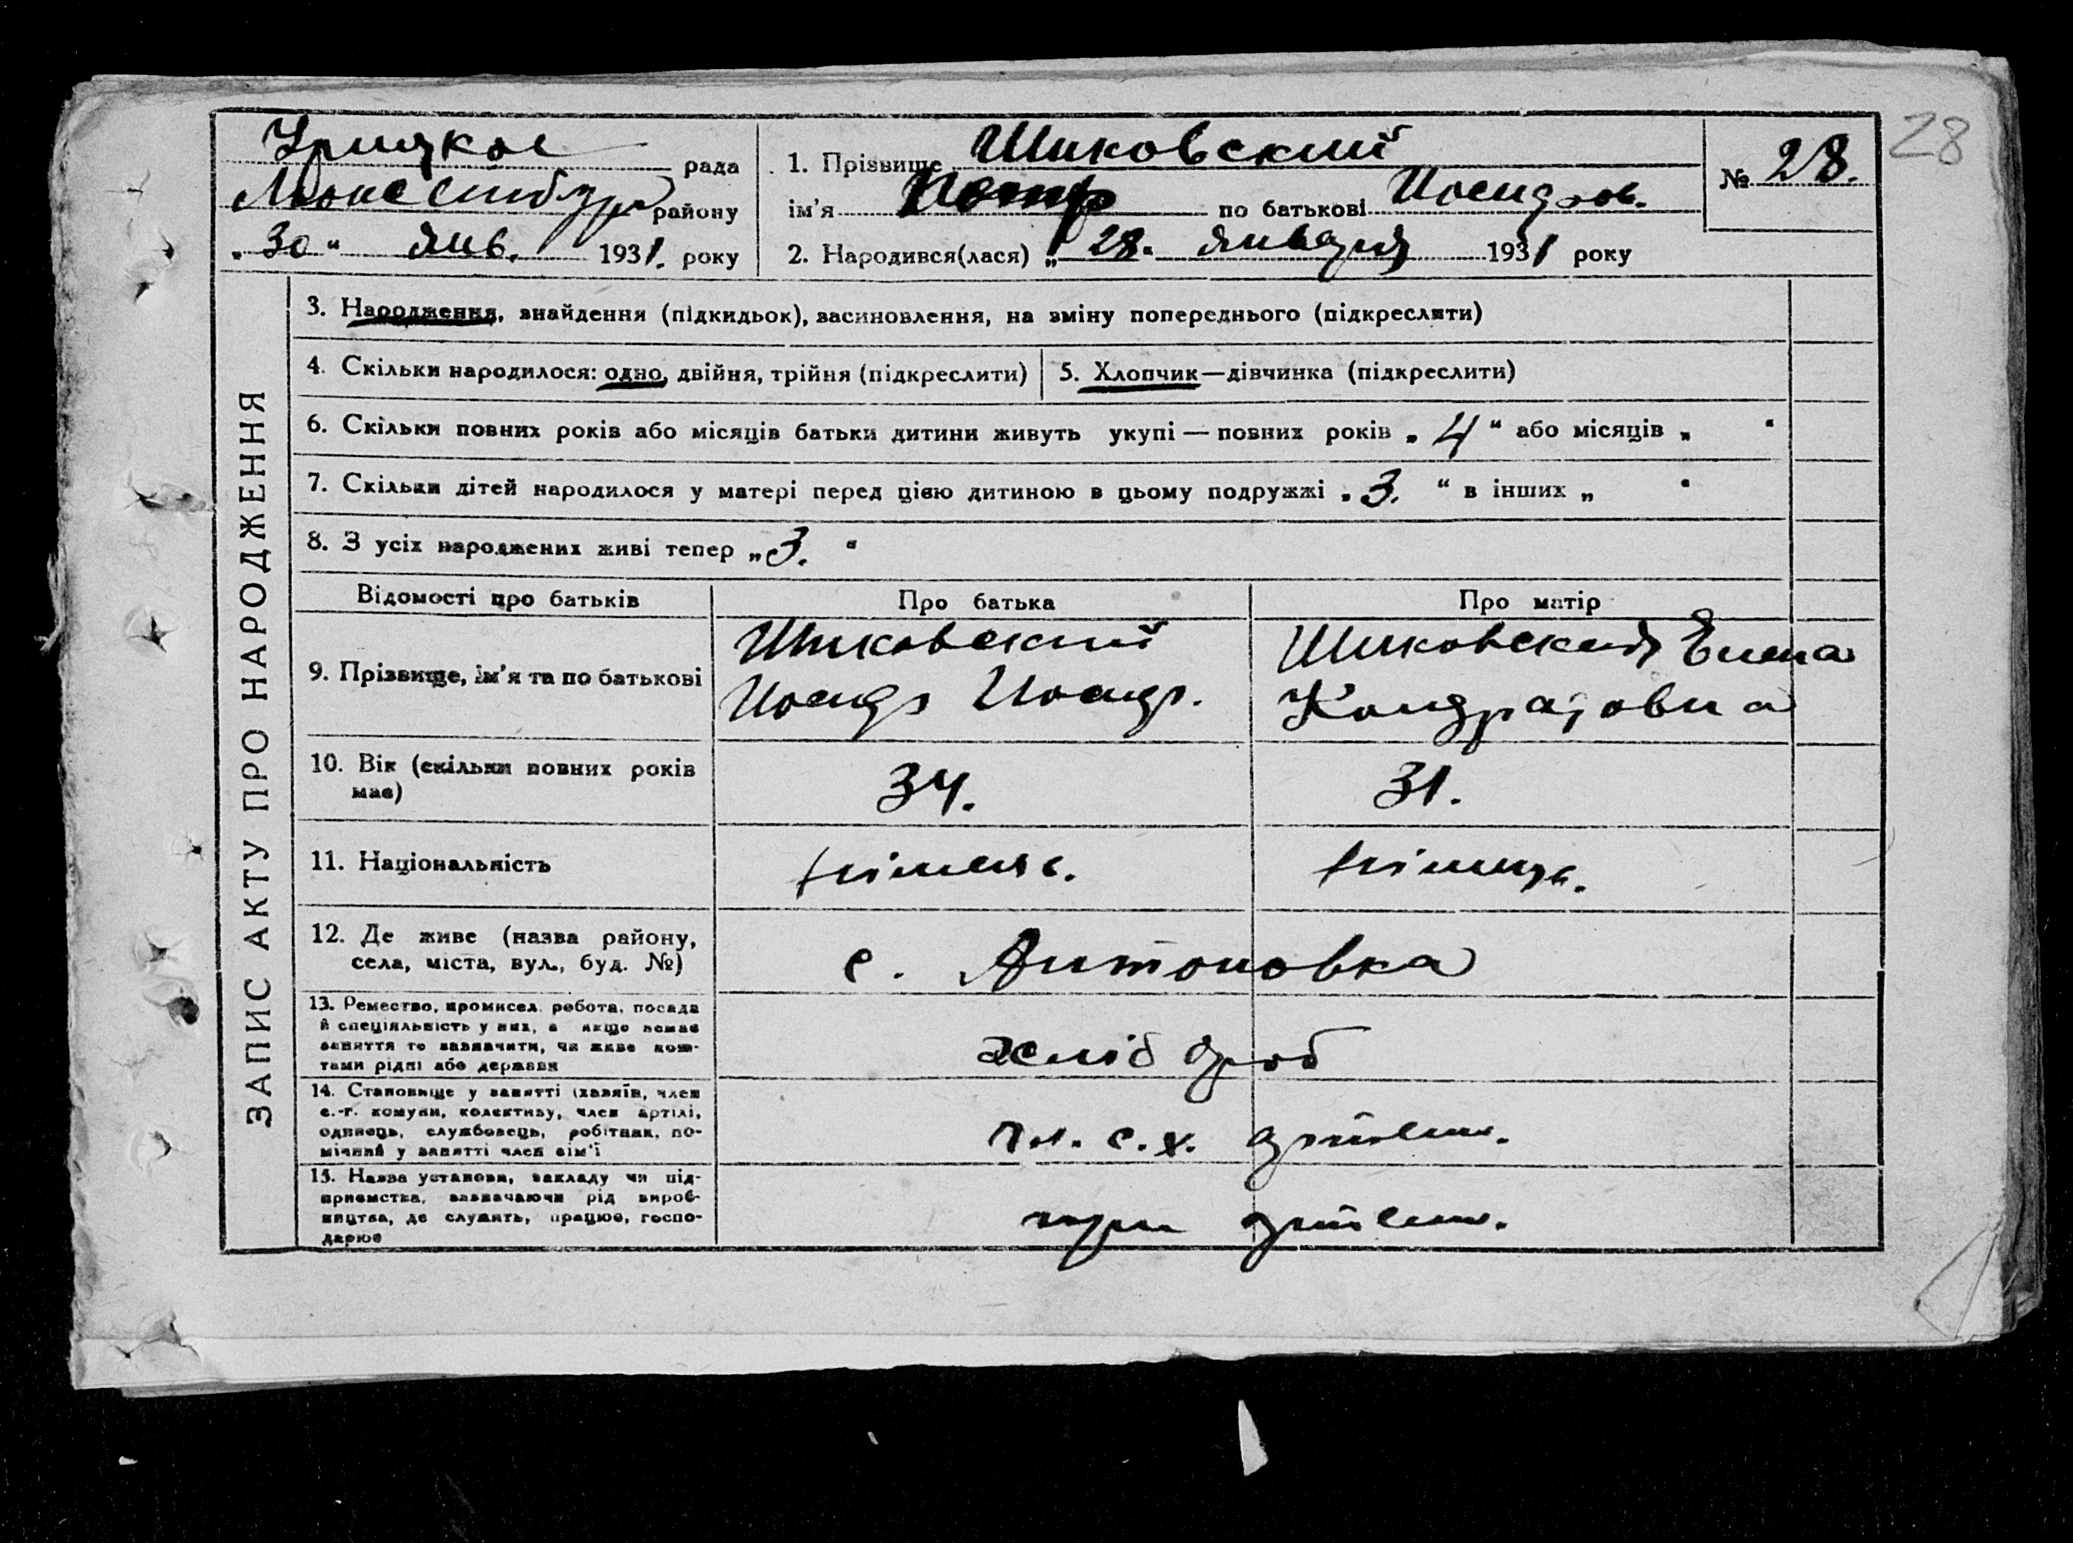 28
рада
району
"30" янв. 1931. року
1. Прізвище Шиковский
ім'я Петр по батькові
2. Народився(лася) „28." января 1931 року
№ 28.
ЗАПИС АКТУ ПРО НАРОДЖЕННЯ
3. Народження, знайдення (підкидьок), засиновлення, на зміну попереднього (підкреслити)
4. Скільки народилося: одно, двійня, трійня (підкреслити)
5. Хлопчик—дівчинка (підкреслити)
6. Скільки повних років або місяців батьки дитини живуть укупі — повних років „4" або місяців „ "
7. Скільки дітей народилося у матері перед цією дитиною в цьому подружжі „3." в інших „ "
8. З усіх народжених живі тепер „3."
Відомості про батьків
Про батька
Про матір
9. Прізвище, ім'я та по батькові
Шиковский
Шиковская Елена
Кондратовна
10. Вік (скільки повних років
має)
34.
31.
11. Національність
німець.
12. Де живе (назва району,
села, міста, вул., буд. №)
с. Антоновка
13. Ремество, промисел, робота, посада
й спеціяльність у них, а якщо немає
заняття то зазначити, чи живе кош-
тами рідні або держави
хліб
14. Становище у занятті (хазяїн, член
с.-г. комуни, колективу, член артілі,
одинець, службовець, робітник, по-
мічний у занятті член сім'ї
чл. с.х.
15. Назва установи, закладу чи під-
приємства, зазначаючи рід вироб-
ництва, де служить, працює, госпо-
дарює
при